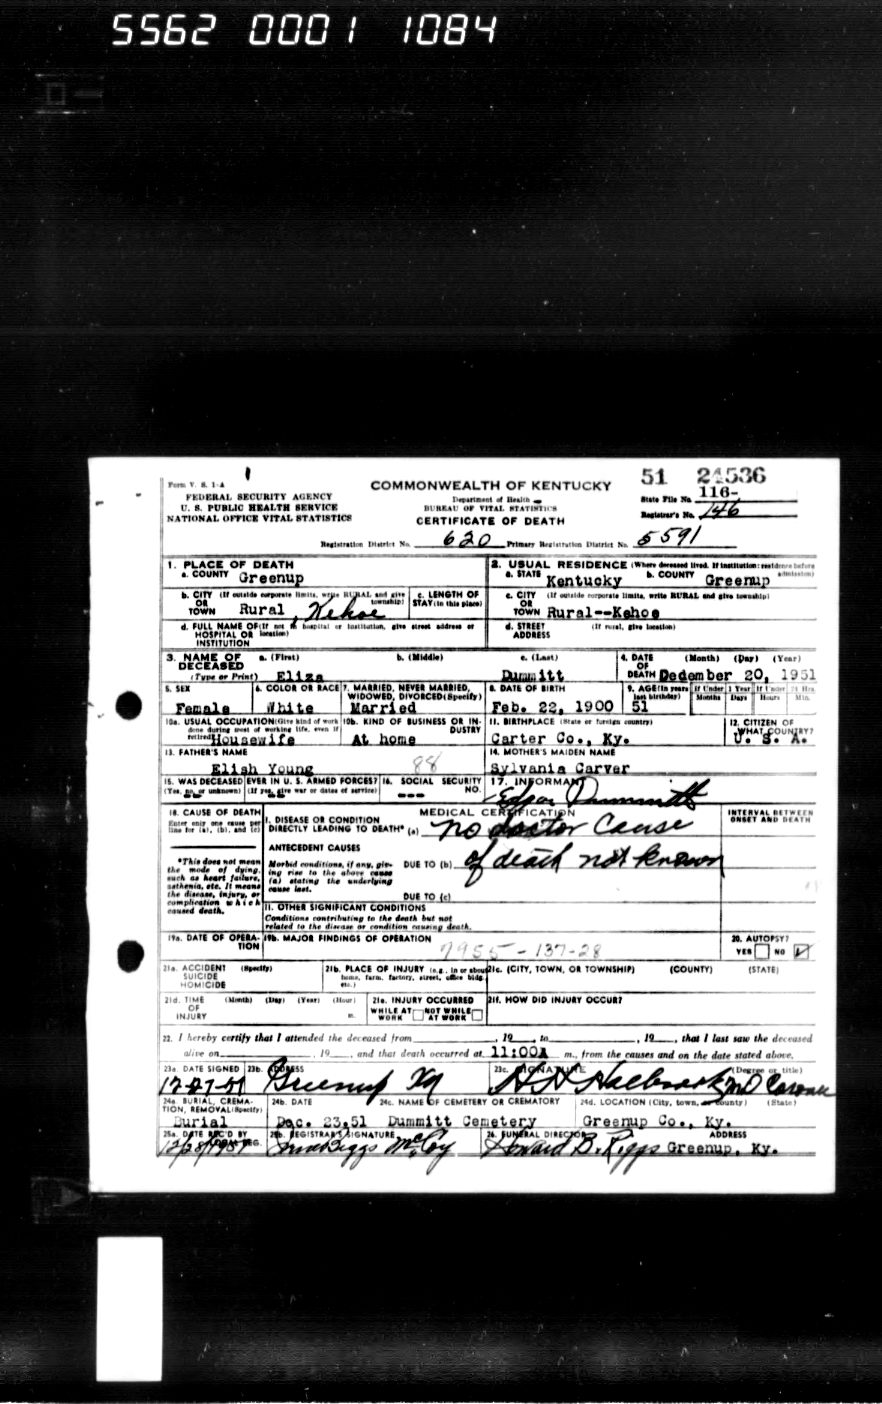 5562 0001 1084
Form V. S. 1-A
FEDERAL SECURITY AGENCY
U. S. PUBLIC HEALTH SERVICE
NATIONAL OFFICE VITAL STATISTICS
COMMONWEALTH OF KENTUCKY
Department of Health
BUREAU OF VITAL STATISTICS
CERTIFICATE OF DEATH
51 24536
State File No. 116-
Registrar's No. 146
Registration District No. 620 Primary Registration District No. 5591
1. PLACE OF DEATH
a. COUNTY Greenup
2. USUAL RESIDENCE (Where deceased lived. If institution: residence before admission)
a. STATE Kentucky b. COUNTY Greenup
b. CITY (If outside corporate limits, write RURAL and give township)
OR TOWN Rural, Kehoe
c. LENGTH OF STAY (in this place)
c. CITY (If outside corporate limits, write RURAL and give township)
OR TOWN Rural--Kehoe
d. FULL NAME OF (If not in hospital or institution, give street address or location)
HOSPITAL OR INSTITUTION
d. STREET ADDRESS (If rural, give location)
3. NAME OF DECEASED (Type or Print)
a. (First) b. (Middle) c. (Last)
Eliza Dummitt
4. DATE OF DEATH (Month) (Day) (Year)
December 20, 1951
5. SEX
Female
6. COLOR OR RACE
White
7. MARRIED, NEVER MARRIED, WIDOWED, DIVORCED (Specify)
Married
8. DATE OF BIRTH
Feb. 22, 1900
9. AGE (In years last birthday)
51
If Under 1 Year Months Days
If Under 24 Hrs. Hours Min.
10a. USUAL OCCUPATION (Give kind of work done during most of working life, even if retired)
Housewife
10b. KIND OF BUSINESS OR INDUSTRY
At home
11. BIRTHPLACE (State or foreign country)
Carter Co., Ky.
12. CITIZEN OF WHAT COUNTRY?
U. S. A.
13. FATHER'S NAME
Elish Young 88
14. MOTHER'S MAIDEN NAME
Sylvania Carver
15. WAS DECEASED EVER IN U. S. ARMED FORCES?
(Yes, no, or unknown) (If yes, give war or dates of service)
16. SOCIAL SECURITY NO.
---
17. INFORMANT
Edgar Dummitt
18. CAUSE OF DEATH
Enter only one cause per line for (a), (b), and (c)
*This does not mean the mode of dying, such as heart failure, asthenia, etc. It means the disease, injury, or complication which caused death.
MEDICAL CERTIFICATION
INTERVAL BETWEEN ONSET AND DEATH
I. DISEASE OR CONDITION DIRECTLY LEADING TO DEATH* (a) no doctor Cause
ANTECEDENT CAUSES
Morbid conditions, if any, giving rise to the above cause (a) stating the underlying cause last.
DUE TO (b) of death not known
DUE TO (c)
II. OTHER SIGNIFICANT CONDITIONS
Conditions contributing to the death but not related to the disease or condition causing death.
19a. DATE OF OPERATION
19b. MAJOR FINDINGS OF OPERATION
7955-137-28
20. AUTOPSY?
YES NO
21a. ACCIDENT SUICIDE HOMICIDE (Specify)
21b. PLACE OF INJURY (e.g., in or about home, farm, factory, street, office bldg., etc.)
21c. (CITY, TOWN, OR TOWNSHIP) (COUNTY) (STATE)
21d. TIME OF INJURY (Month) (Day) (Year) (Hour) m.
21e. INJURY OCCURRED
WHILE AT WORK NOT WHILE AT WORK
21f. HOW DID INJURY OCCUR?
22. I hereby certify that I attended the deceased from , 19 , to , 19 , that I last saw the deceased
alive on , 19 , and that death occurred at 11:00A m., from the causes and on the date stated above.
23a. DATE SIGNED
12-27-51
23b. ADDRESS
Greenup Ky
23c. SIGNATURE (Degree or title)
H H Holbrook MD Coroner
24a. BURIAL, CREMATION, REMOVAL (Specify)
Burial
24b. DATE
Dec. 23,51
24c. NAME OF CEMETERY OR CREMATORY
Dummitt Cemetery
24d. LOCATION (City, town, or county) (State)
Greenup Co., Ky.
25a. DATE REC'D BY LOCAL REG.
12/28/1951
25b. REGISTRAR'S SIGNATURE
Biggs McCoy
26. FUNERAL DIRECTOR ADDRESS
Howard B. Riggs Greenup, Ky.